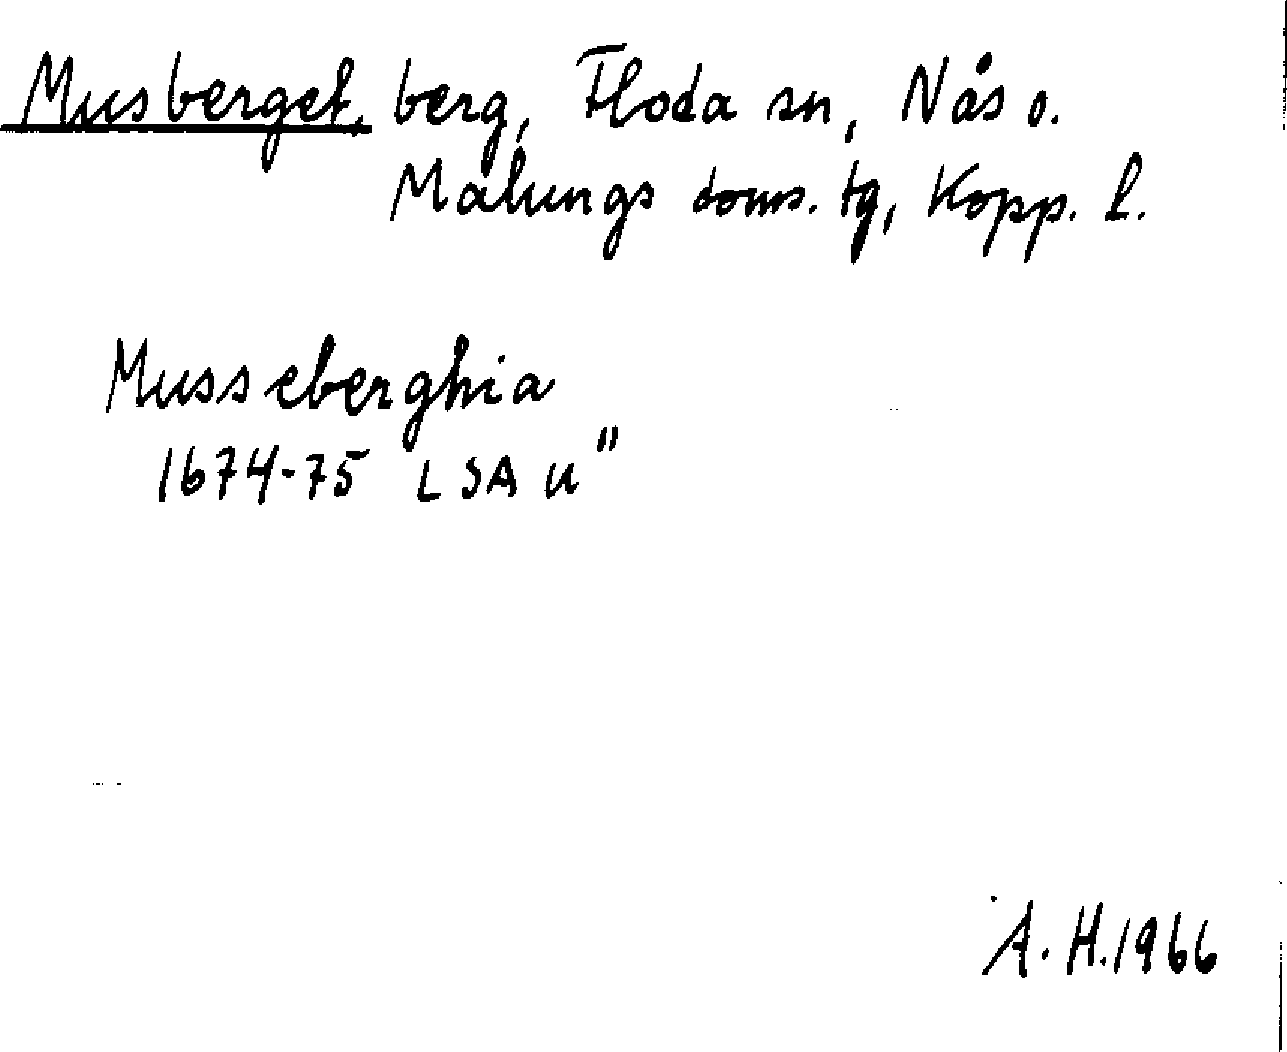 Musberget, berg, Floda sn, Nås o.
Malungs doms. tg, Kopp. l.
Musseberghia
1674-75 LSA u"
A. H. 1966